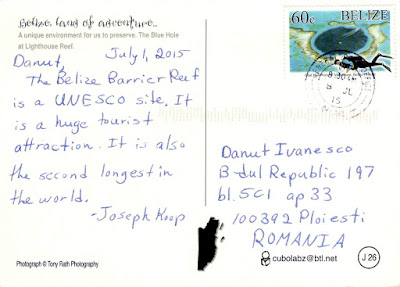 Belize, land of adventure..
A unique environment for us to preserve. The Blue Hole
at Lighthouse Reef.
July 1, 2015
Danut,
The Belize Barrier Reef
is a UNESCO site. It
is a huge tourist
attraction. It is also
the second longest in
the world.
-Joseph Koop
Photograph © Tony Rath Photography
60c BELIZE
Danut Ivanesco
B-dul Republic 197
bl. 5C1 ap 33
100392 Ploiesti
ROMANIA
cubolabz@btl.net
J 26